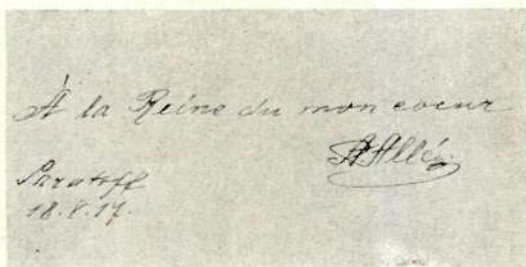 À la Reine du mon coeur
A Allé
Saratoff
18.V.17.